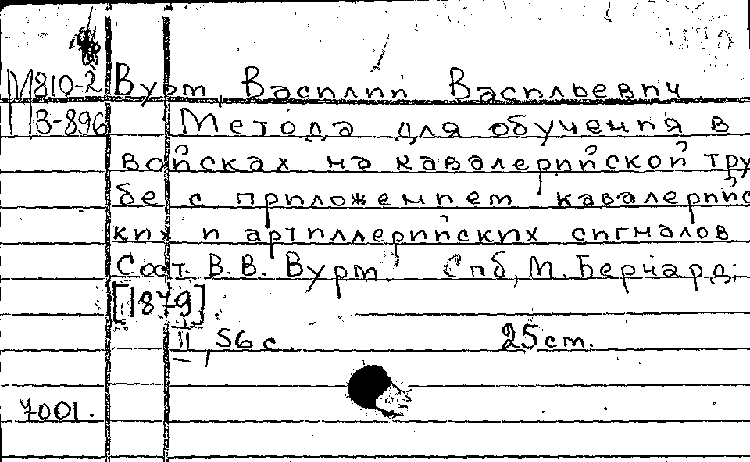 М810-2 Вурт, Василий Васильевич
В-896 Метода для обучения в
войсках на кавалерийской тру
бе с приложением кавалерийс
ких и артиллерийских сигналов
Сост. В. В. Вурт. Спб, М. Бернард,
[1879]
II, 56 с. 25 cm.
7001.